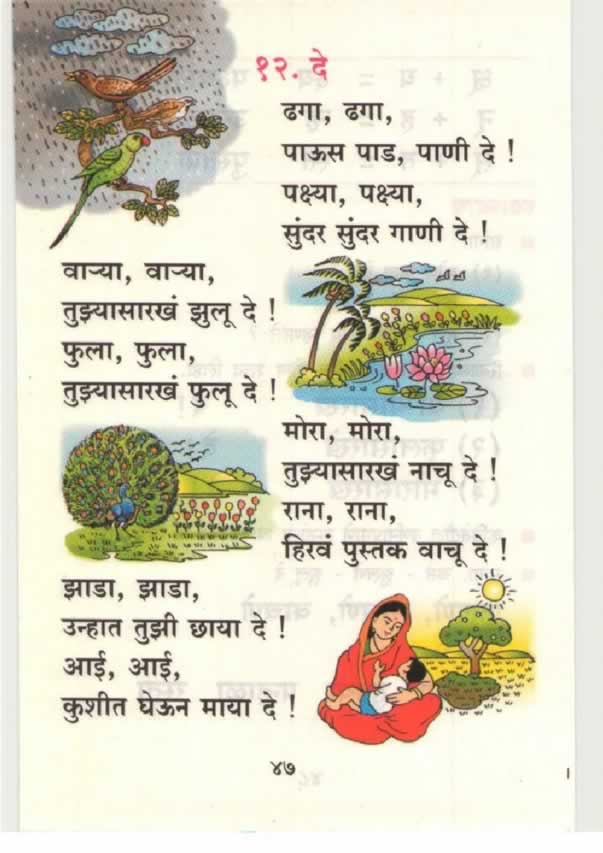 १२. दे
ढगा, ढगा,
पाऊस पाड, पाणी दे !
पक्ष्या, पक्ष्या,
सुंदर सुंदर गाणी दे !
वाऱ्या, वाऱ्या,
तुझ्यासारखं झुलू दे !
फुला, फुला,
तुझ्यासारखं फुलू दे !
मोरा, मोरा,
तुझ्यासारखं नाचू दे !
राना, राना,
हिरवं पुस्तक वाचू दे !
झाडा, झाडा,
उन्हात तुझी छाया दे !
आई, आई,
कुशीत घेऊन माया दे !
४७